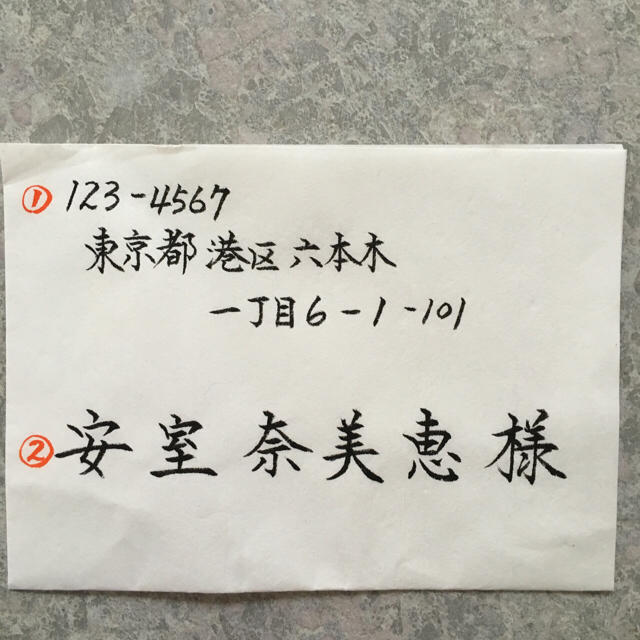 ① 123-4567
東京都 港区 六本木
一丁目6-1-101
② 安室 奈美恵 様